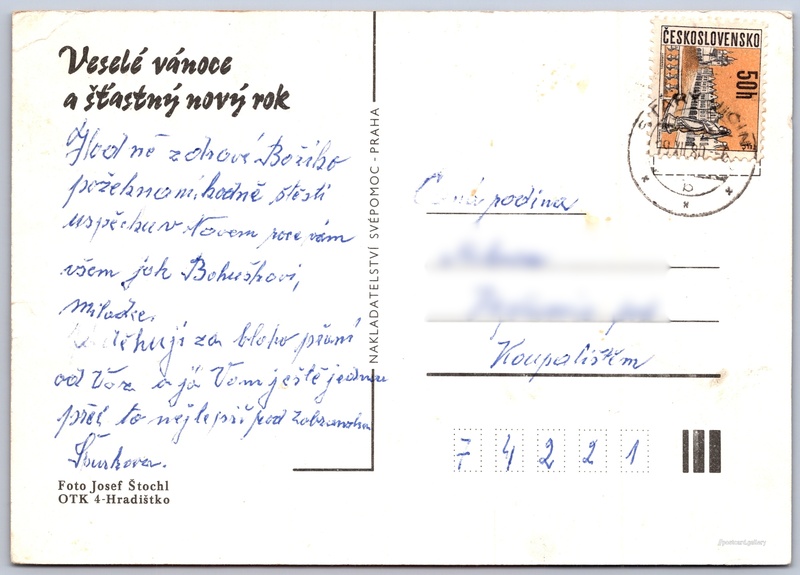 Veselé vánoce
a šťastný nový rok
Hodně zdraví Božího
požehnaní, hodně štěstí
uspěchu v Novem roce vám
všem jak Bohuškovi,
Miladce.
děkuji za blaho přání
od Vás a já Vam ještě jednou
přeji to nejlepší
Foto Josef Štochl
OTK 4-Hradištko
NAKLADATELSTVÍ SVÉPOMOC - PRAHA
ČESKOSLOVENSKO
50h
STARÝ JIČÍN
b
rodina
Koupalištěm
7 4 2 2 1